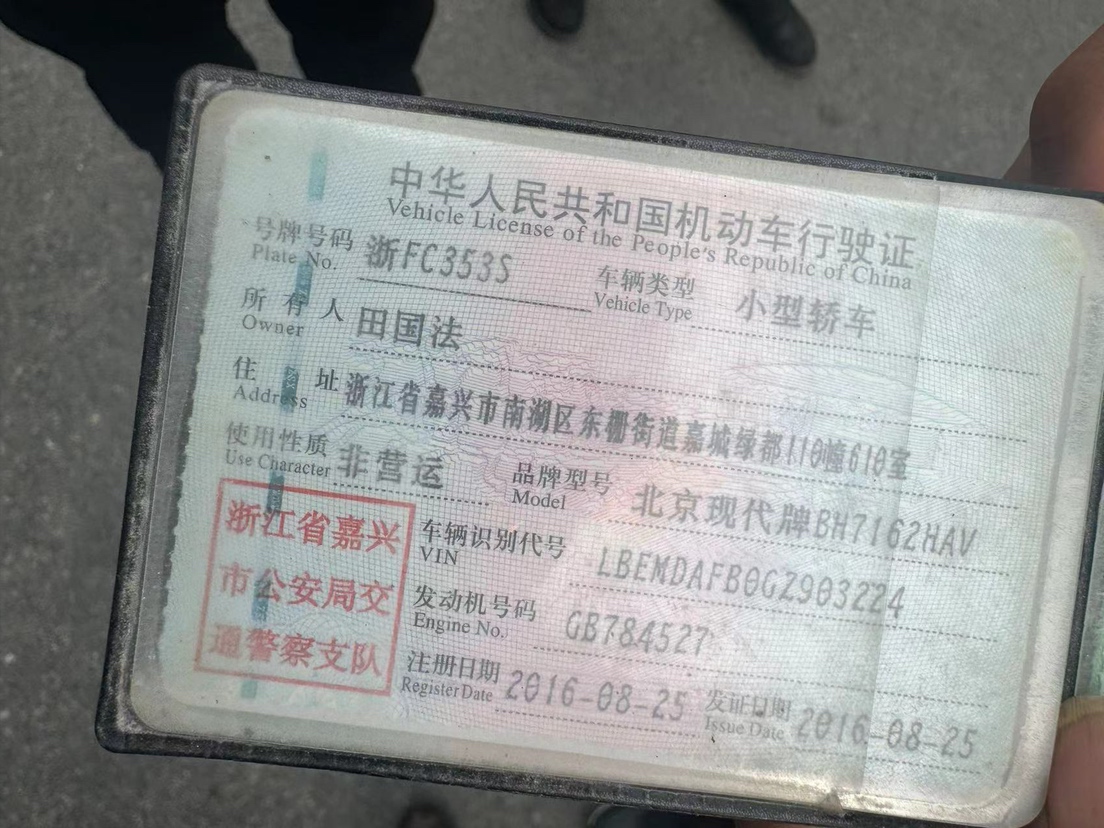 中华人民共和国机动车行驶证
Vehicle License of the People's Republic of China
号牌号码 浙FC353S 车辆类型 小型轿车
Plate No. Vehicle Type
所有人 田国法
Owner
住址 浙江省嘉兴市南湖区东栅街道嘉城绿都110幢610室
Address
使用性质 非营运 品牌型号 北京现代牌BH7162HAV
Use Character Model
浙江省嘉兴
市公安局交
通警察支队
车辆识别代号 LBEMDAFB0GZ903224
VIN
发动机号码 GB784527
Engine No.
注册日期 2016-08-25 发证日期 2016-08-25
Register Date Issue Date